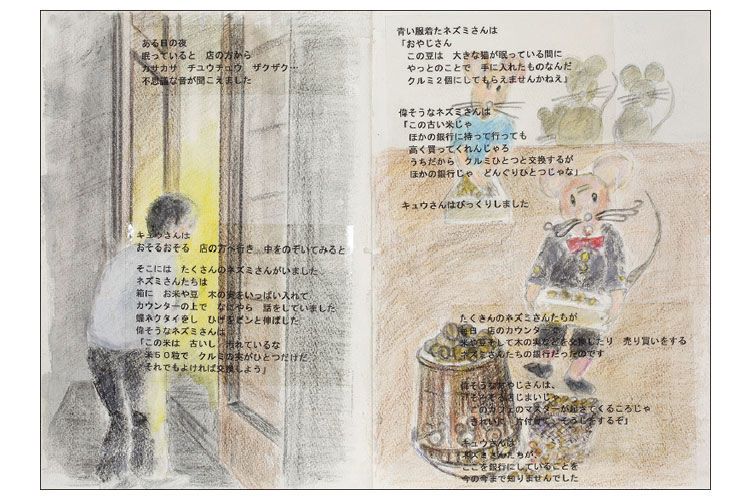 ある日の夜
眠っていると　店の方から
カサカサ　チュウチュウ　ザクザク…
不思議な音が聞こえました
キュウさんは
おそるおそる　店の方へ行き　中をのぞいてみると
そこには　たくさんのネズミさんがいました
ネズミさんたちは
箱に　お米や豆　木の実をいっぱい入れて
カウンターの上で　なにやら　話をしていました
蝶ネクタイをし　ひげをピンと伸ばした
偉そうなネズミさんは
「この米は　古いし　汚れているな
米５０粒で　クルミの実がひとつだけだ
それでもよければ交換しよう」
青い服着たネズミさんは
「おやじさん
この豆は　大きな猫が眠っている間に
やっとのことで　手に入れたものなんだ
クルミ２個にしてもらえませんかねえ」
偉そうなネズミさんは
「この古い米じゃ
ほかの銀行に持って行っても
高く買ってくれんじゃろ
うちだから　クルミひとつと交換するが
ほかの銀行じゃ　どんぐりひとつじゃな」
キュウさんはびっくりしました
たくさんのネズミさんたちが
毎日　店のカウンターで
米や豆そして木の実などを交換したり　売り買いをする
ネズミさんたちの銀行だったのです
偉そうなおやじさんは、
「そろそろ店じまいじゃ
このカフェのマスターが起きてくるころじゃ
きれいに　片付けて　そうじするぞ」
キュウさんは
ネズミさんたちが、
ここを銀行にしていることを
今の今まで知りませんでした